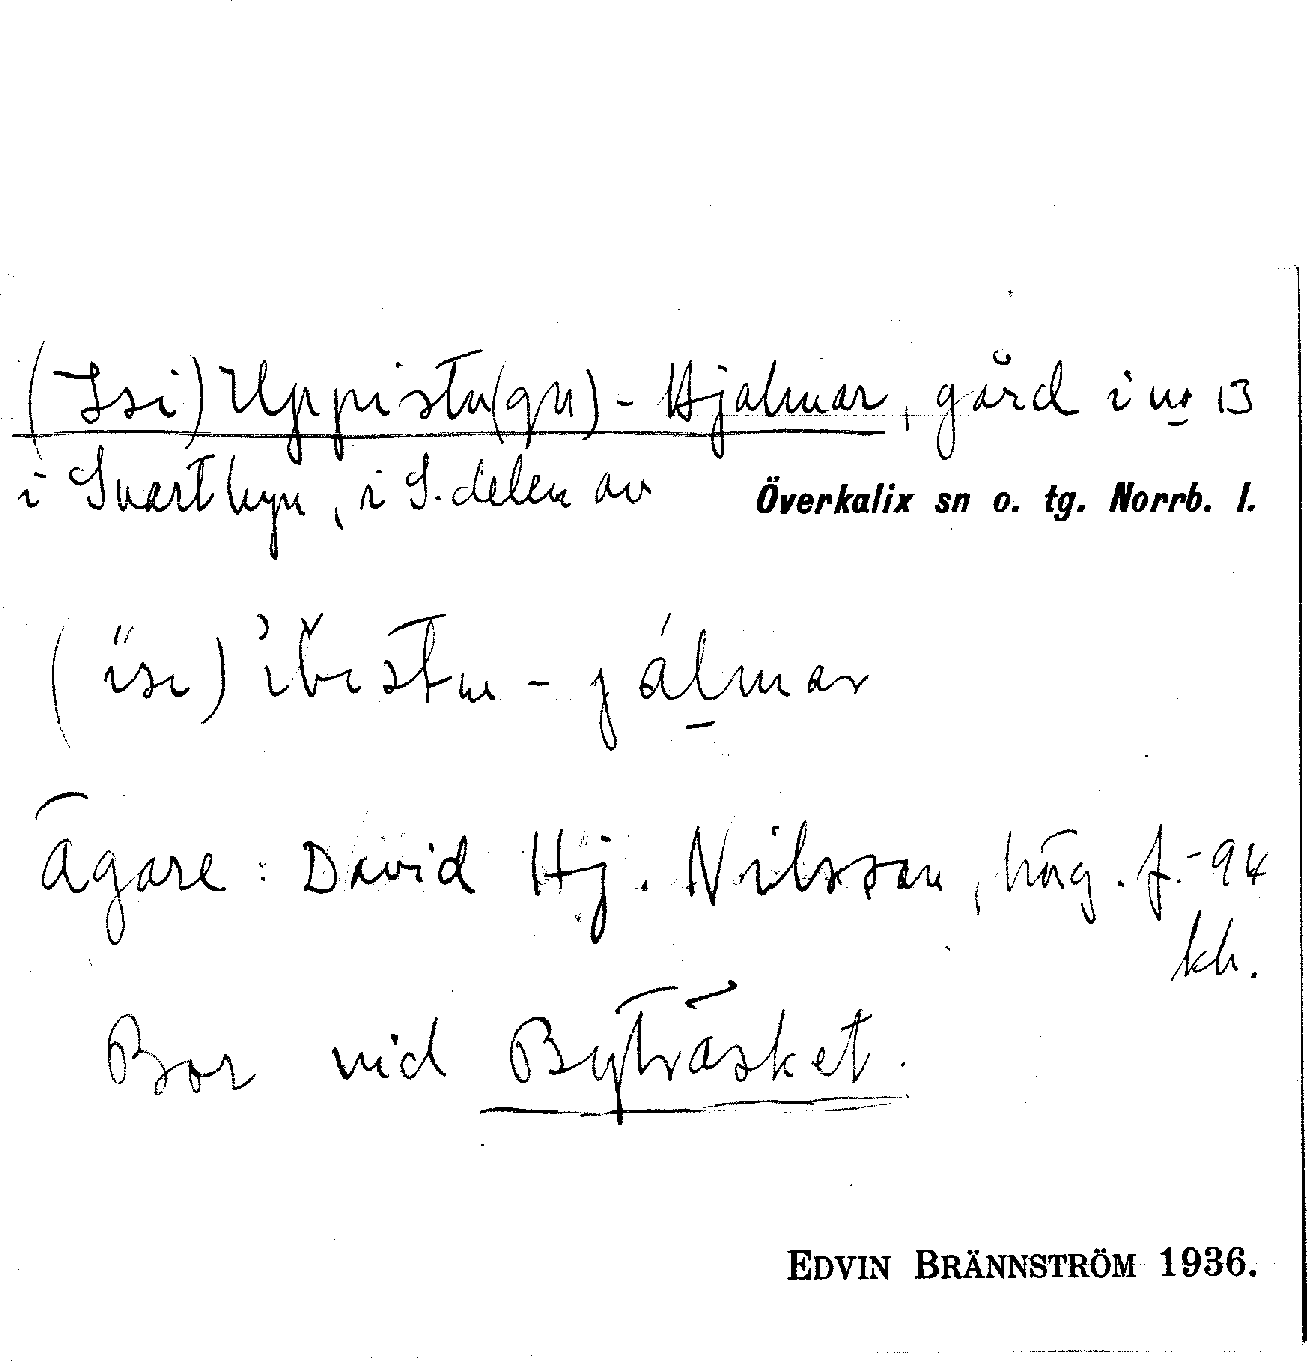 (Isi) Uppistu(gu)-Hjalmar, gård i nr 13
i Svartbyn, i S. delen av Överkalix sn o. tg. Norrb. l.
Ägare: David Hj. Nilsson, häg. f. -94
kh.
Bor vid Byträsket.
EDVIN BRÄNNSTRÖM 1936.